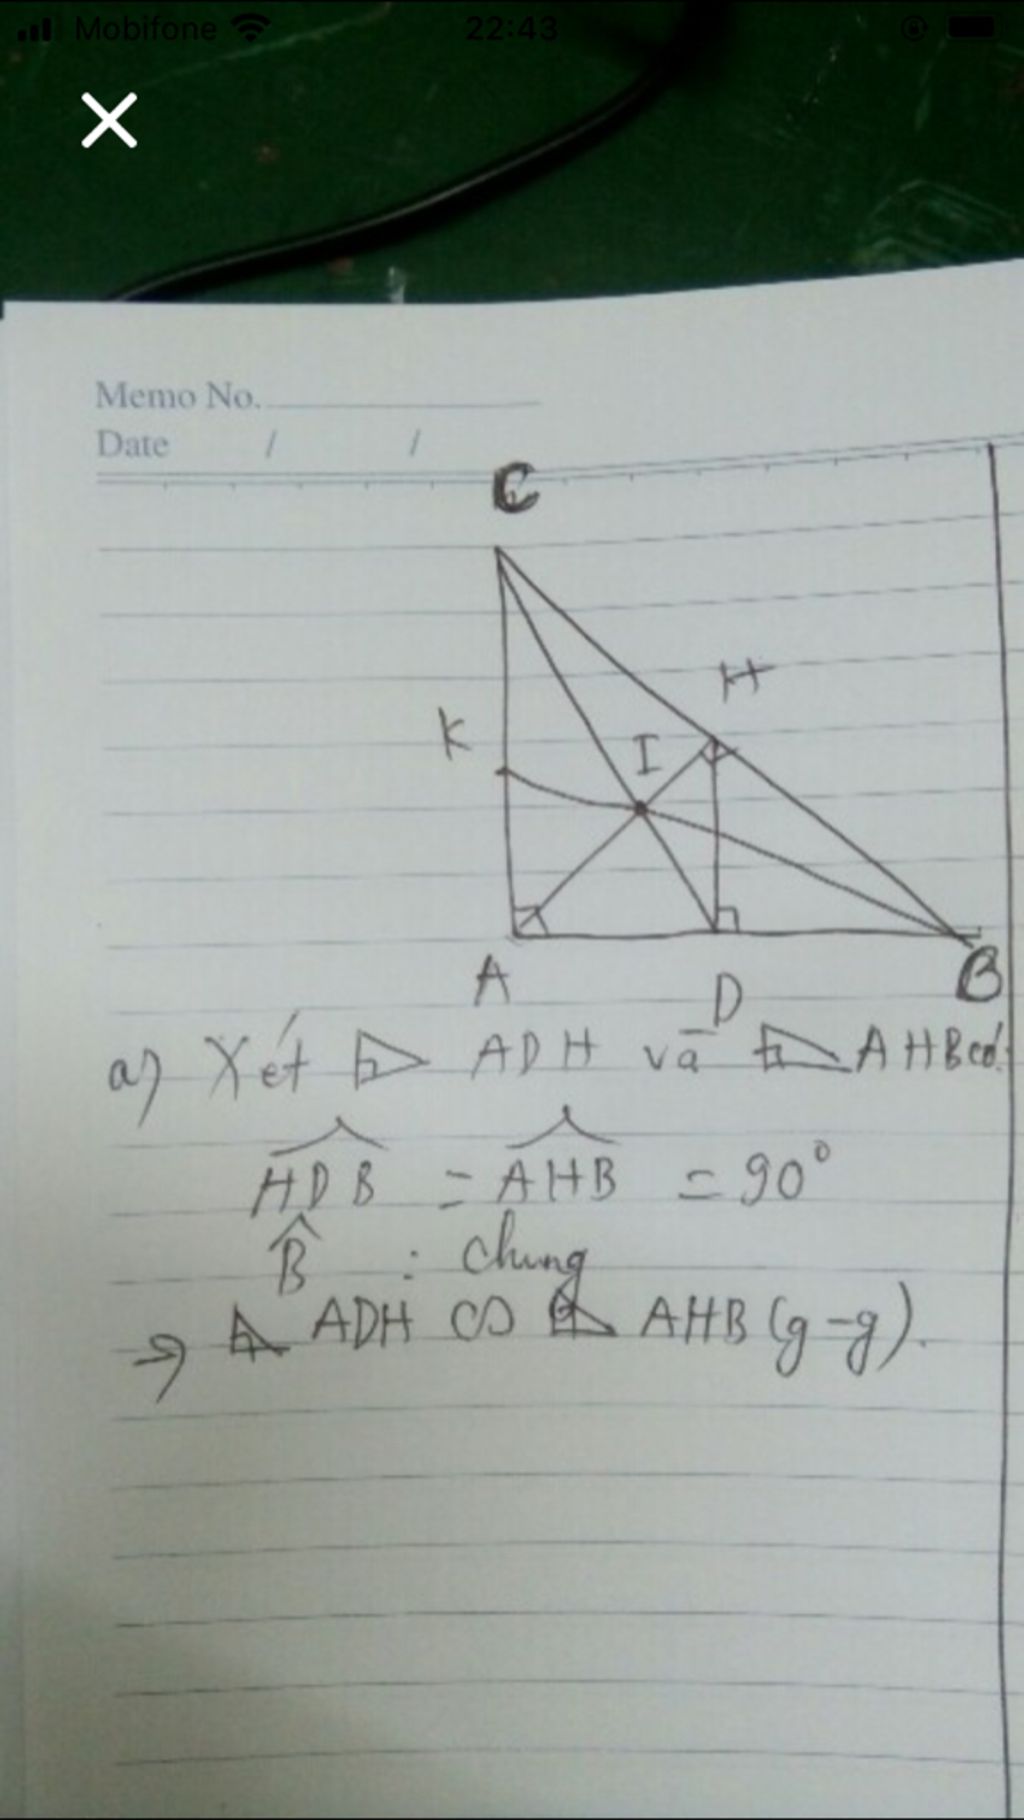 Mobifone 22:43
Memo No.
Date / /
C
H
K
I
A
D
B
a) Xét ADH và AHB có:
HDB = AHB = 90°
B : chung
→ ADH ∽ AHB (g-g).